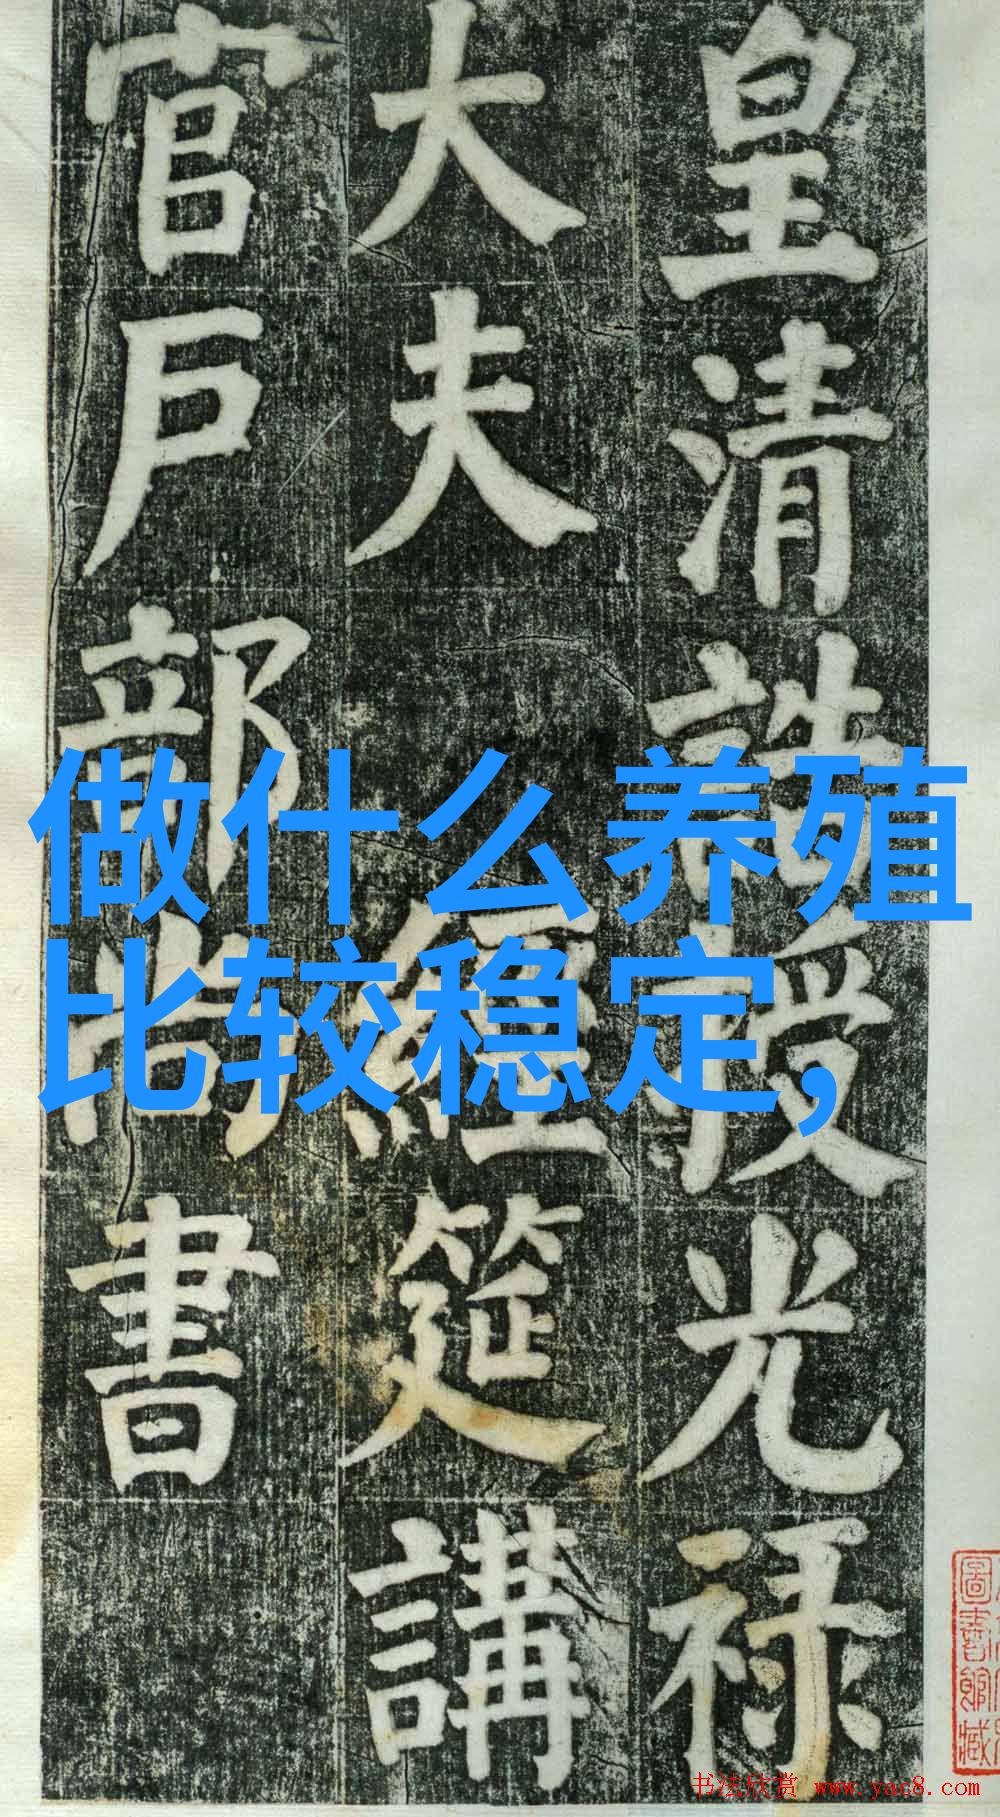 皇清誥授光禄
大夫 經筵講
官戶部尚書
做什么养殖
比较稳定,
圖書館藏
书法欣赏 www.yac8.com